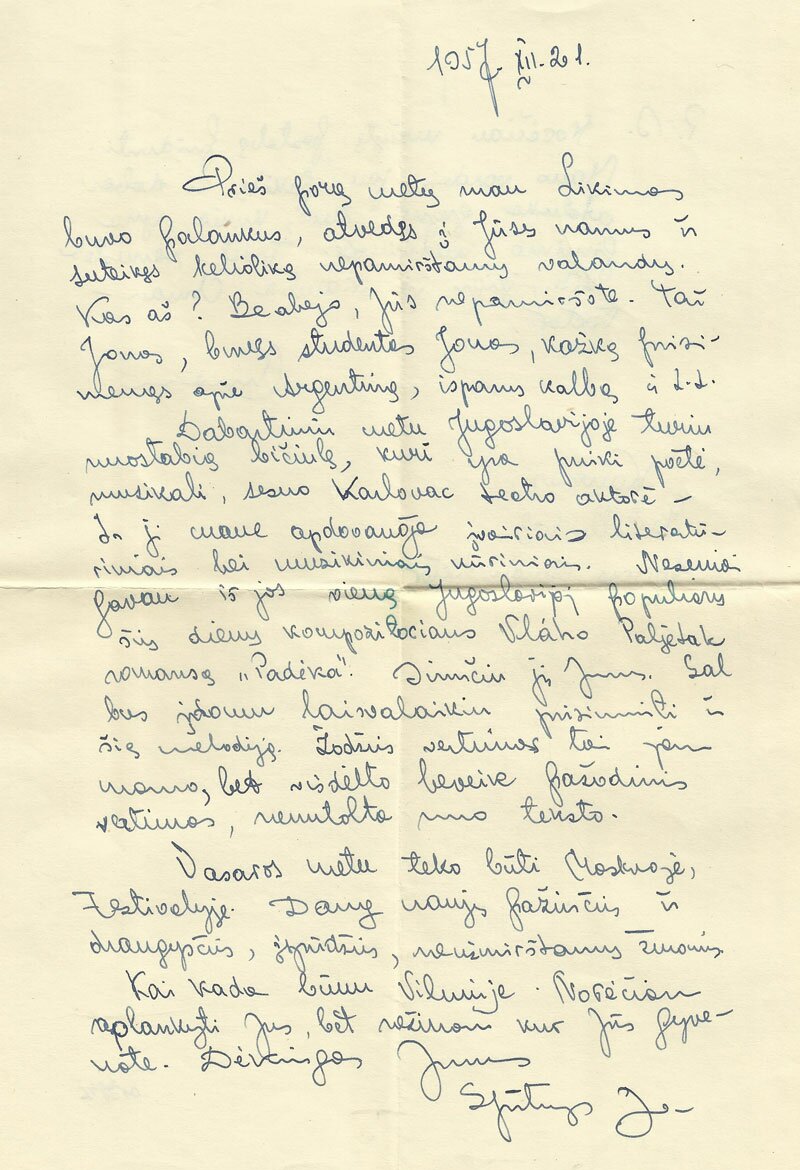 1957. XII. 21.
Prieš porą metų man Likimas
buvo palankus, atvedęs į Jūsų namus ir
suteikęs keliolika nepamirštamų valandų.
Kas aš? Be abejo, Jūs nepamiršote. Tai
Jonas, buvęs studentas Jonas, kažką prisi-
menąs apie Argentiną, ispanų kalbą ir t.t.
Dabartiniu metu Jugoslavijoje turiu
nuostabią bičiulę, kuri yra puiki poetė,
muzikali, seno Karlovac teatro aktorė –
Ir ji mane apdovanoja įvairiais literatū-
riniais bei muzikiniais kūriniais. Neseniai
gavau iš jos vieną Jugoslavijoj populiaraus
šių dienų kompozitoriaus Vláho Paljetak
romansą „Padėka". Siunčiu jį Jums. Gal
bus įdomu laisvalaikiu prisiminti ir
šią melodiją. Žodžius vertimas tai jau
mano, bet visdėlto beveik pažodinis
vertimas, nenutolta nuo teksto.
Vasaros metu teko būti Maskvoje,
Festivalyje. Daug naujų pažinčių ir
draugysčių, įspūdžių, neužmirštamų žmonių.
Kai kada būnu Vilniuje. Norėčiau
aplankyti Jus, bet nežinau kur Jūs gyve-
nate. Dėkingas Jums